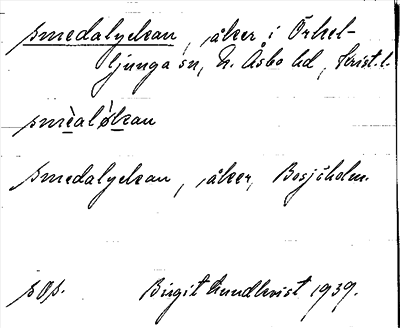 smedalyckan, åker i Örkel-
ljunga sn, N. Åsbo hd, Krist. l.
smèaløkan
smedalyckan, åker, Bosjöholm.
sOp. Birgit Lundkvist 1939.